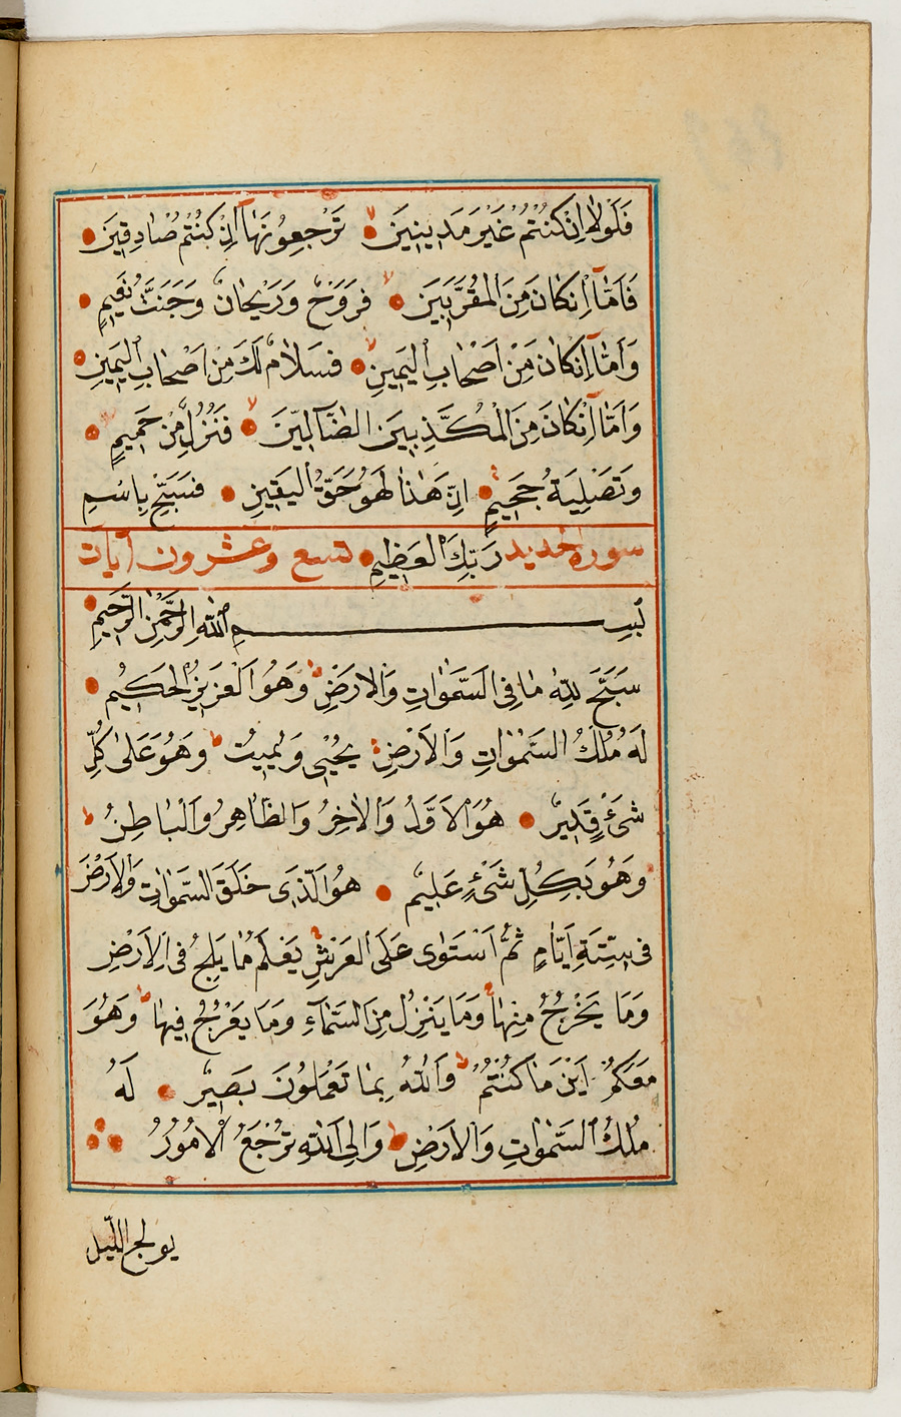 فَلَوْلَا اِنْ كُنْتُمْ غَيْرَ مَدِينِينَ تَرْجِعُونَهَا اِنْ كُنْتُمْ صَادِقِينَ
فَاَمَّا اِنْ كَانَ مِنَ الْمُقَرَّبِينَ فَرَوْحٌ وَرَيْحَانٌ وَجَنَّتُ نَعِيمٍ
وَاَمَّا اِنْ كَانَ مِنْ اَصْحَابِ الْيَمِينِ فَسَلَامٌ لَكَ مِنْ اَصْحَابِ الْيَمِينِ
وَاَمَّا اِنْ كَانَ مِنَ الْمُكَذِّبِينَ الضَّالِّينَ فَنُزُلٌ مِنْ حَمِيمٍ
وَتَصْلِيَةُ جَحِيمٍ اِنَّ هٰذَا لَهُوَ حَقُّ الْيَقِينِ فَسَبِّحْ بِاسْمِ
سورة الحديد رَبِّكَ الْعَظِيمِ تسع وعشرون آيات
بِسْمِ اللّٰهِ الرَّحْمٰنِ الرَّحِيمِ
سَبَّحَ لِلّٰهِ مَا فِي السَّمٰوَاتِ وَالْاَرْضِ وَهُوَ الْعَزِيزُ الْحَكِيمُ
لَهُ مُلْكُ السَّمٰوَاتِ وَالْاَرْضِ يُحْيِي وَيُمِيتُ وَهُوَ عَلٰى كُلِّ
شَيْءٍ قَدِيرٌ هُوَ الْاَوَّلُ وَالْاٰخِرُ وَالظَّاهِرُ وَالْبَاطِنُ
وَهُوَ بِكُلِّ شَيْءٍ عَلِيمٌ هُوَ الَّذِي خَلَقَ السَّمٰوَاتِ وَالْاَرْضَ
فِي سِتَّةِ اَيَّامٍ ثُمَّ اسْتَوٰى عَلَى الْعَرْشِ يَعْلَمُ مَا يَلِجُ فِي الْاَرْضِ
وَمَا يَخْرُجُ مِنْهَا وَمَا يَنْزِلُ مِنَ السَّمَاءِ وَمَا يَعْرُجُ فِيهَا وَهُوَ
مَعَكُمْ اَيْنَ مَا كُنْتُمْ وَاللّٰهُ بِمَا تَعْمَلُونَ بَصِيرٌ لَهُ
مُلْكُ السَّمٰوَاتِ وَالْاَرْضِ وَاِلَى اللّٰهِ تُرْجَعُ الْاُمُورُ
يولج الليل